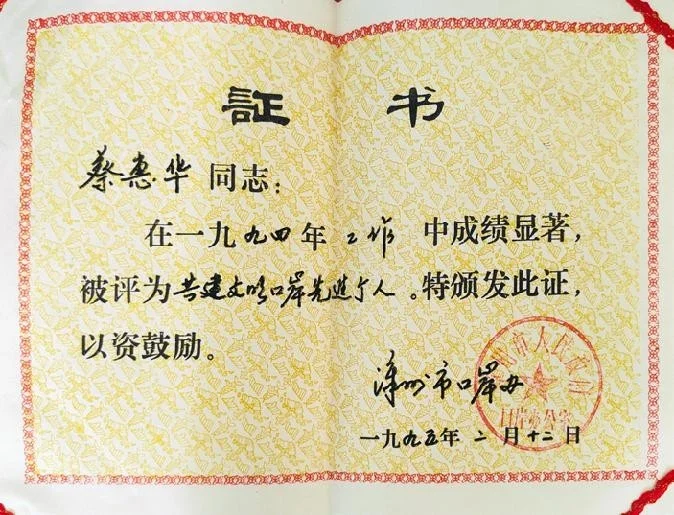 証 书
蔡惠华 同志：
在一九九四年 工作 中成绩显著，
被评为共建文明口岸先进个人。特颁发此证，
以资鼓励。
漳州市口岸办
一九九五年 二 月 十二 日
漳州市人民政府
口岸办公室